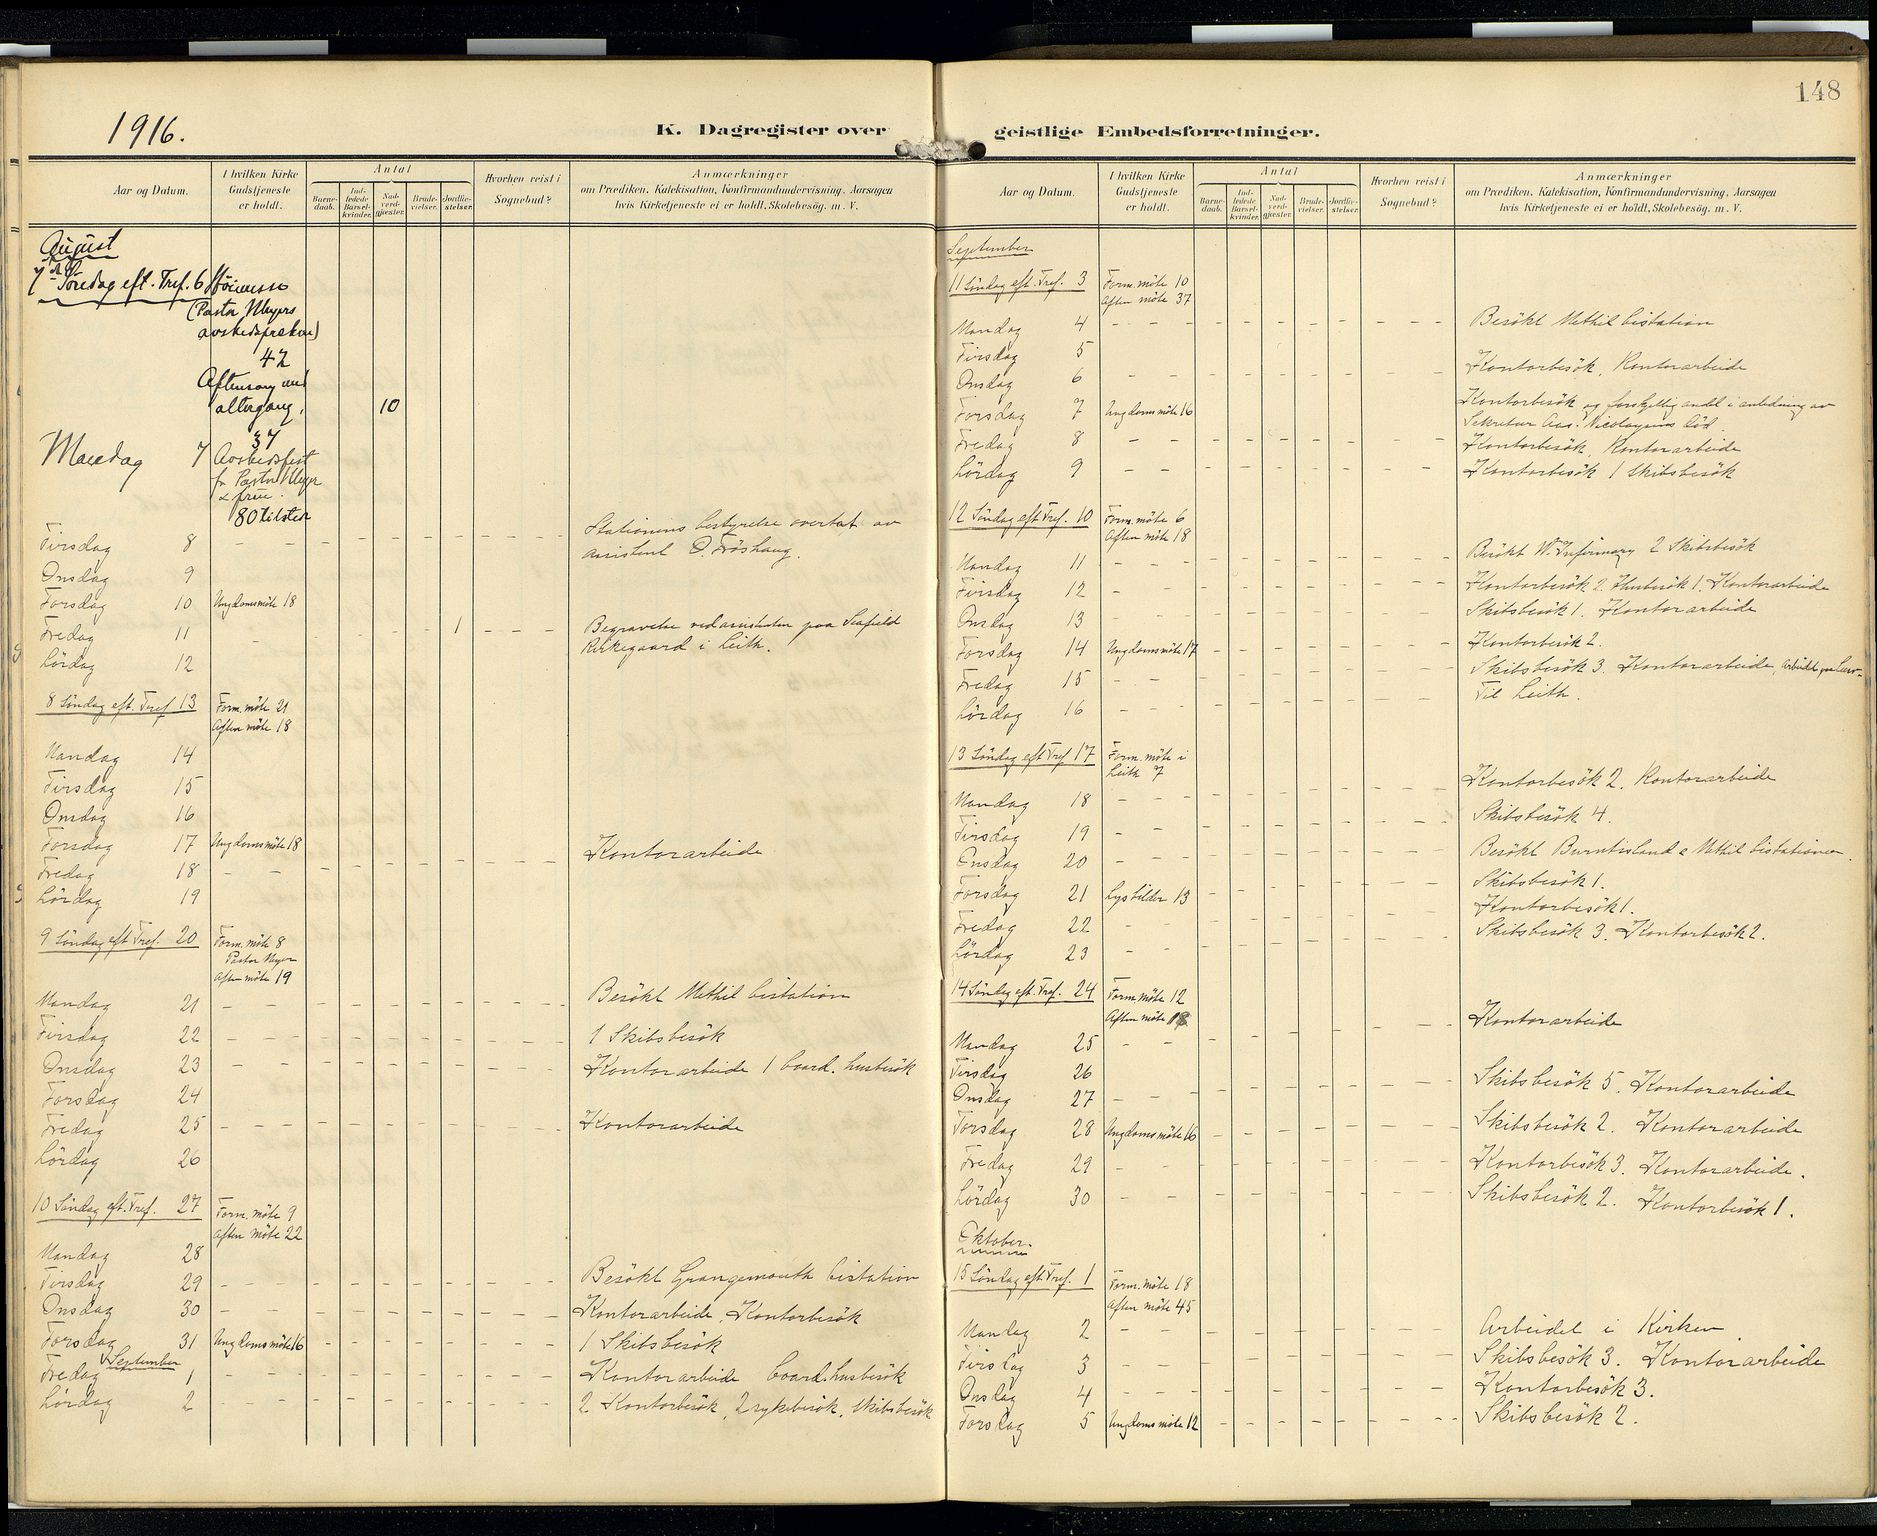 1916.
K. Dagregister over
Aar og Datum.
I hvilken Kirke Gudstjeneste er holdt.
Antal
Barne-daab.
Ind-ledede Barsel-kvinder.
Nad-verd-gjester.
Brude-vielser.
Jordfæ-stelser.
Hvorhen reist i Sognebud?
Anmærkninger
om Prædiken, Katekisation, Konfirmandundervisning, Aarsagen
hvis Kirketjeneste ei er holdt, Skolebesøg. m. V.
August
7de Søndag eft. Tref. 6 Höimesse
(Pastor Meyers
avskedspræken)
42
Aftensang med
altergang, 10
37
Mandag 7 Avskedsfest
for Pastor Meyer
& frue.
80 tilsted
Stationens bestyrelse overtat av
Tirsdag 8 assistent O. Fröshaug.
Onsdag 9
Torsdag 10 Ungdomsmöte 18
Fredag 11 1 Begravelse ved assistenten paa Seafield
Lördag 12 Kirkegaard i Leith.
8 Söndag eft. Tref 13 Form. möte 21
Aften möte 18
Mandag 14
Tirsdag 15
Onsdag 16
Torsdag 17 Ungdomsmöte 18
Fredag 18 Kontorarbeide
Lördag 19
9 Söndag eft Tref. 20 Form. möte 8
Pastor Meyer
Aften möte 19
Mandag 21 Besökt Methil bistation
Tirsdag 22 1 Skibsbesök
Onsdag 23 Kontorarbeide 1 board. husbesök
Torsdag 24
Fredag 25 Kontorarbeide
Lördag 26
10 Söndag eft. Tref. 27 Form. möte 9
Aften möte 22
Mandag 28
Tirsdag 29 Besökt Grangemouth bistation
Onsdag 30 Kontorarbeide, Kontorbesök
Torsdag 31 Ungdomsmöte 16 1 Skibsbesök
September
Fredag 1 Kontorarbeide board. husbesök
Lördag 2 2 Kontorbesök, 2 sykebesök, Skibsbesök
148
geistlige Embedsforretninger.
Aar og Datum.
I hvilken Kirke Gudstjeneste er holdt.
Antal
Barne-daab.
Ind-ledede Barsel-kvinder.
Nad-verd-gjester.
Brude-vielser.
Jordfæ-stelser.
Hvorhen reist i Sognebud?
Anmærkninger
om Prædiken, Katekisation, Konfirmandundervisning, Aarsagen
hvis Kirketjeneste ei er holdt, Skolebesøg. m. V.
September
11 Söndag eft. Tref. 3 Form. möte 10
Aften möte 37
Mandag 4 Besökt Methil bistation
Tirsdag 5
Onsdag 6 Kontorbesök, Kontorarbeide
Torsdag 7 Ungdomsmöte 16 Kontorbesök og forskjellig andet i anledning av
Sekretær Aas. Nicolaysens död.
Fredag 8 Kontorbesök, Kontorarbeide
Lördag 9 Kontorbesök 1 Skibsbesök
12 Söndag eft Tref. 10 Form. möte 6
Aften möte 18
Mandag 11 Besökt W. Infirmary 2 Skibsbesök
Tirsdag 12 Kontorbesök 2. Husbesök 1, Kontorarbeide
Onsdag 13 Skibsbesök 1. Kontorarbeide
Torsdag 14 Ungdomsmöte 17 Kontorbesök 2.
Fredag 15 Skibsbesök 3. Kontorarbeide, Arbeidet
Lördag 16 Til Leith.
13 Söndag eft Tref 17 Form. möte i
Leith 7
Mandag 18 Kontorbesök 2. Kontorarbeide
Tirsdag 19 Skibsbesök 4.
Onsdag 20 Besökt Burntisland & Methil bistationer.
Torsdag 21 Lysbilder 13 Skibsbesök 1.
Fredag 22 Kontorbesök 1.
Lördag 23 Skibsbesök 3. Kontorbesök 2.
14 Söndag eft. Tref. 24 Form. möte 12
Aften möte 18
Mandag 25 Kontorarbeide
Tirsdag 26
Onsdag 27 Skibsbesök 5. Kontorarbeide
Torsdag 28 Ungdomsmöte 16 Skibsbesök 2. Kontorarbeide
Fredag 29 Kontorbesök 3. Kontorarbeide.
Lördag 30 Skibsbesök 2. Kontorbesök 1.
Oktober.
15 Söndag eft Tref. 1 Form. möte 18
Aften möte 45
Mandag 2 Arbeidet i Kirken.
Tirsdag 3 Skibsbesök 3. Kontorarbeide
Onsdag 4 Kontorbesök 3.
Torsdag 5 Ungdomsmöte 12 Skibsbesök 2.